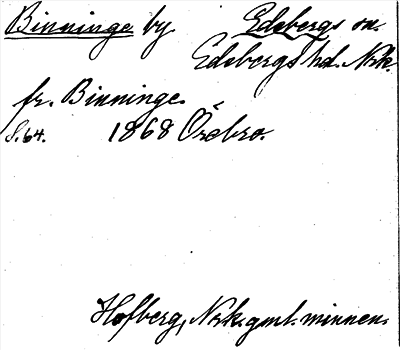 Binninge by Edsbergs sn.
Edsbergs hd. Nrk.
fr. Binninge.
S. 64. 1868 Örebro.
Hofberg, Nrk. gml. minnen.